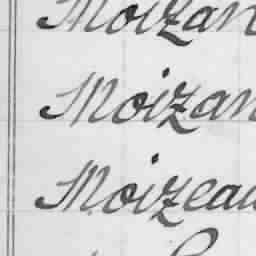 Moizan
Moizan
Moizeau